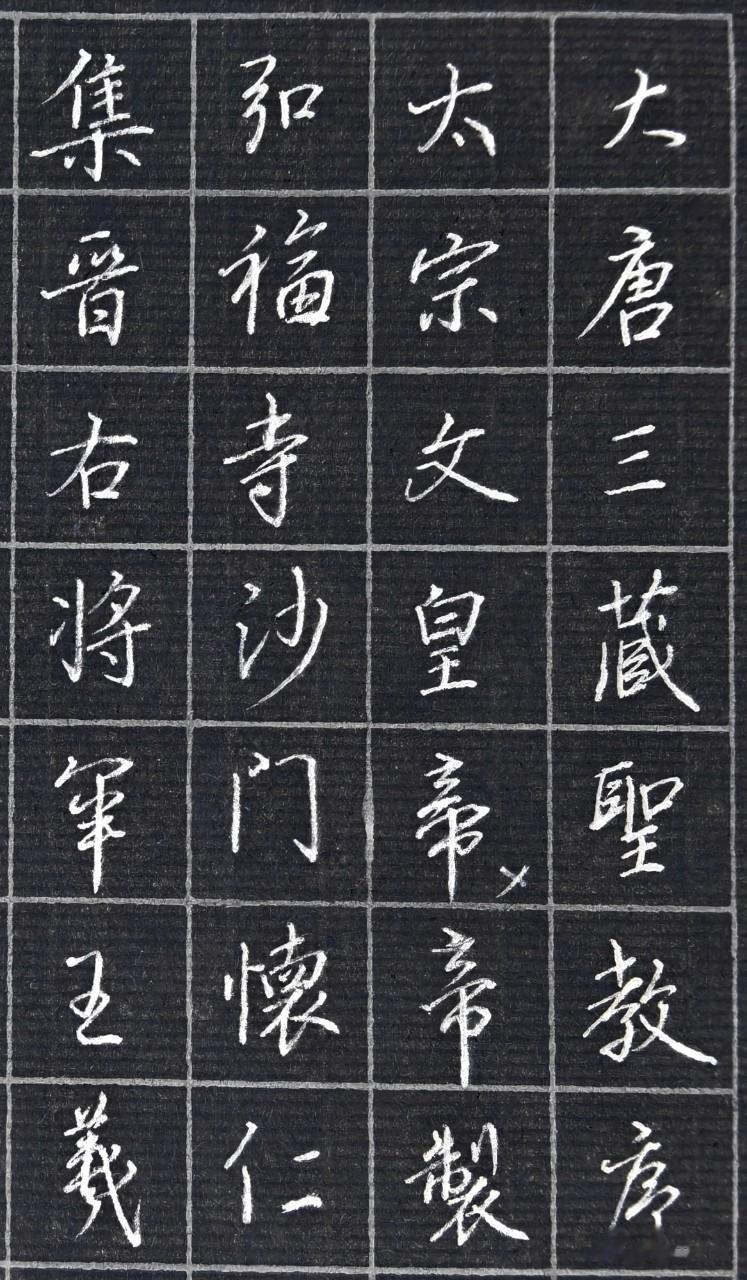 大唐三藏聖教序
太宗文皇帝帝製
弘福寺沙门懷仁
集晋右将軍王羲